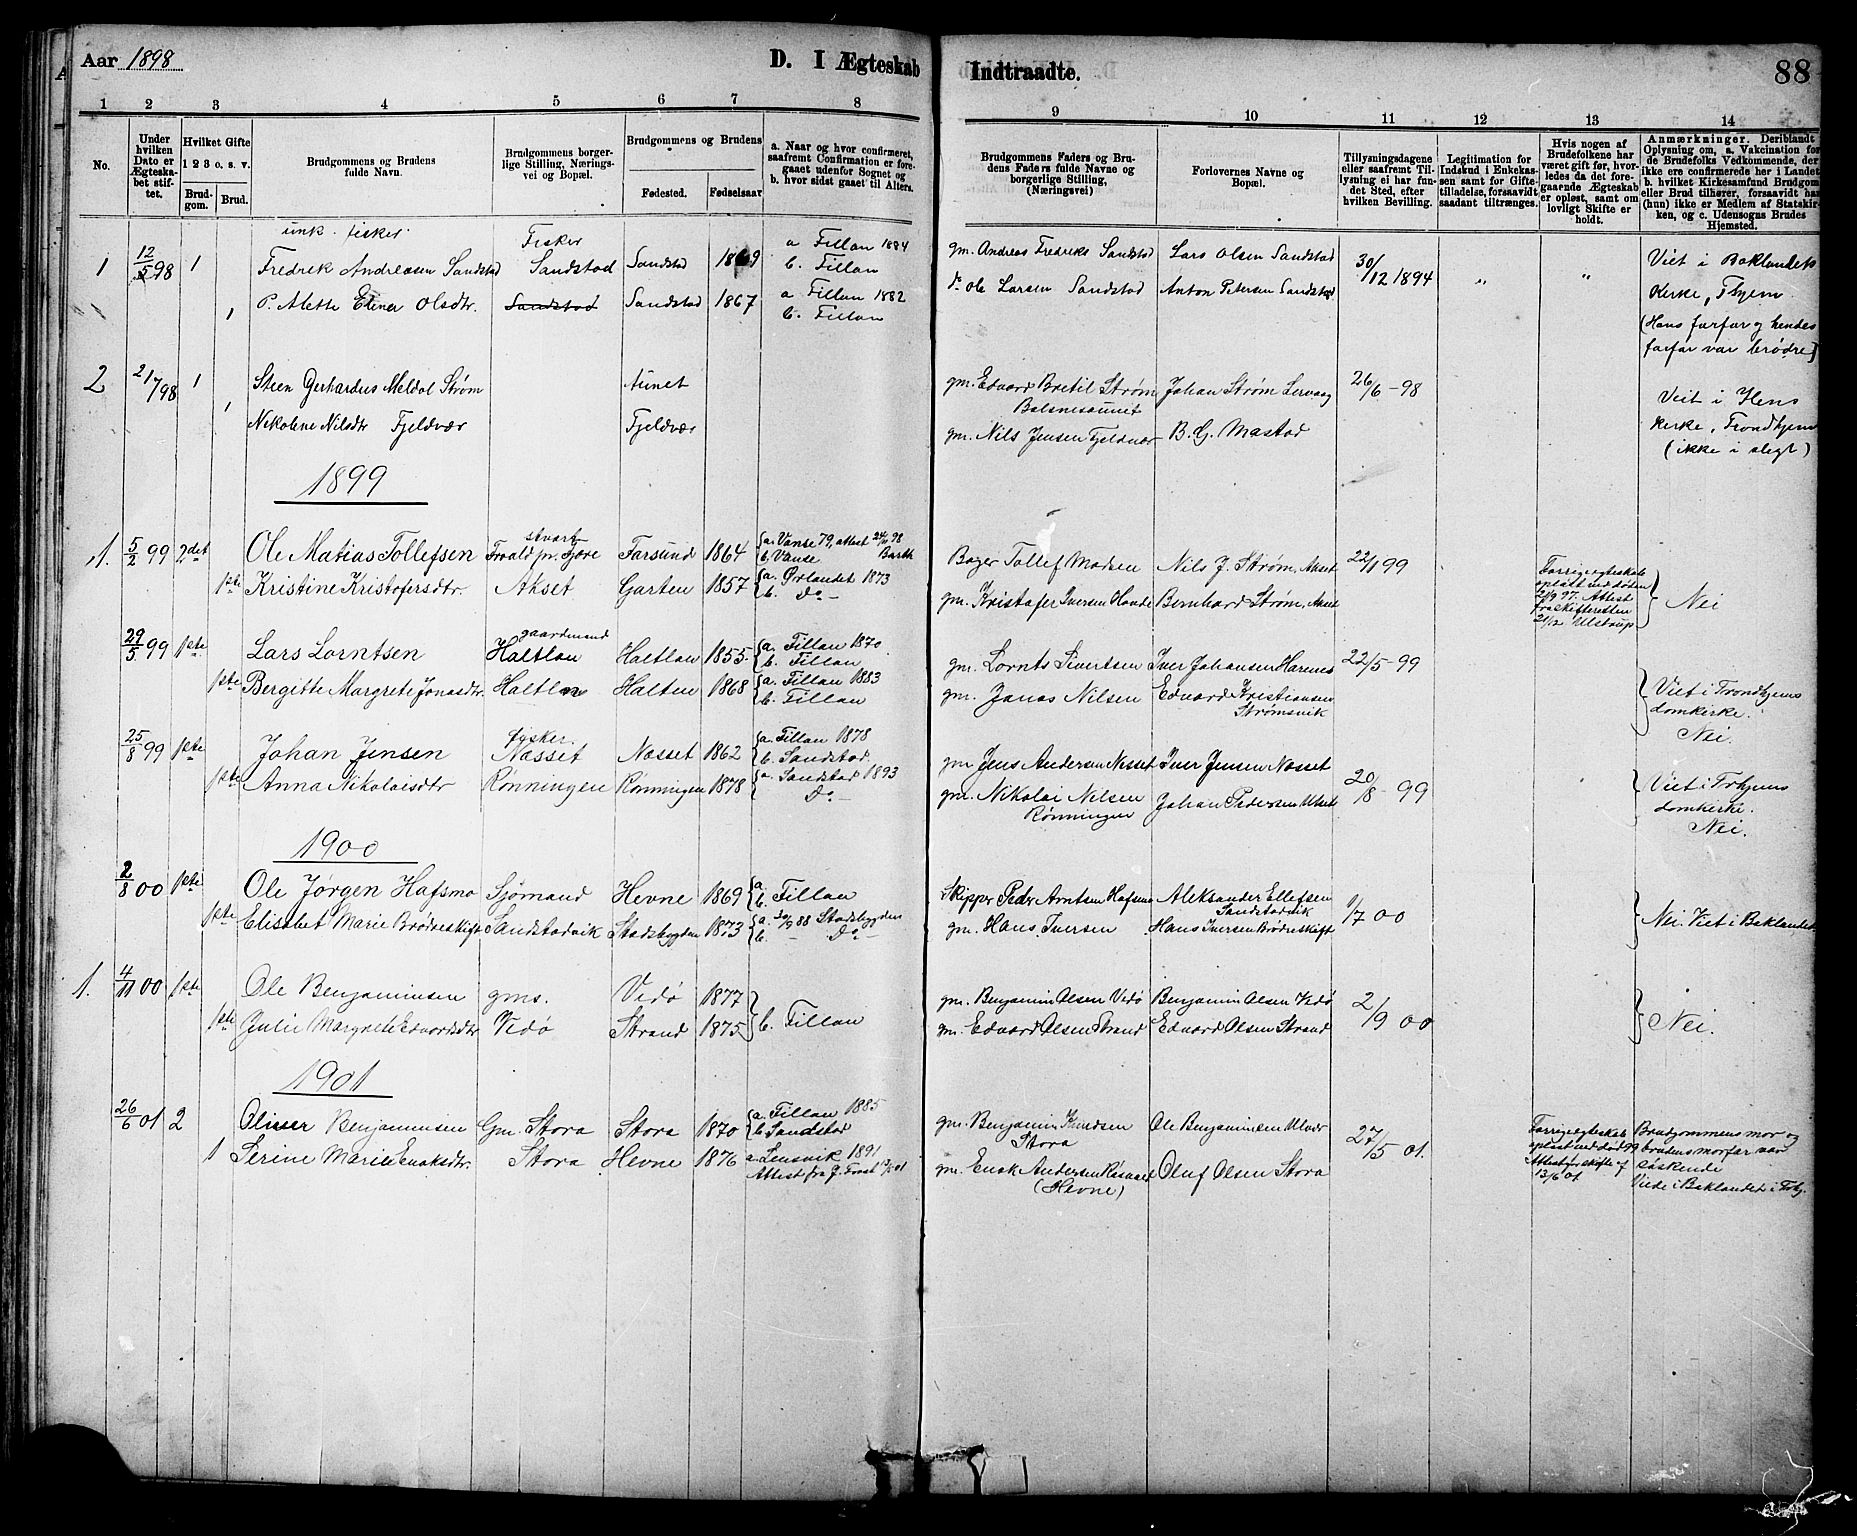 Aar 1898
D. I Ægteskab Indtraadte.
88
1 2 3 4 5 6 7 8 9 10 11 12 13 14
No.
Under hvilken Dato er Ægteskabet stiftet.
Hvilket Gifte 1 2 3 o. s. v.
Brudgom. Brud.
Brudgommens og Brudens fulde Navn.
Brudgommens borgerlige Stilling, Næringsvei og Bopæl.
Brudgommens og Brudens
Fødested. Fødselsaar
a. Naar og hvor confirmeret, saafremt Confirmation er foregaaet udenfor Sognet og b. hvor sidst gaaet til Alters.
Brudgommens Faders og Brudens Faders fulde Navne og borgerlige Stilling, (Næringsvei)
Forlovernes Navne og Bopæl.
Tillysningsdagene eller saafremt Tillysning ei har fundet Sted, efter hvilken Bevilling.
Legitimation for Indskud i Enkekassen samt for Giftetilladelse, forsaavidt saadant tiltrænges.
Hvis nogen af Brudefolkene har været gift før, hvorledes da det foregaaende Ægteskab er opløst, samt om lovligt Skifte er holdt.
Anmærkninger. Deriblandt Oplysning om, a. Vakcination for de Brudefolks Vedkommende, der ikke ere confirmerede her i Landet b. hvilket Kirkesamfund Brudgom eller Brud tilhører, forsaavidt han (hun) ikke er Medlem af Statskirken, og c. Udensogns Brudes Hjemsted.
unk. fisker. Fisker
1 12/5 98 1 Fredrik Andreasen Sandstad Sandstad Sandstad 1869 a Fillan 1884 b. Fillan gm. Andreas Fredriks Sandstad Lars Olsen Sandstad 30/12 1894 " " Viet i Baklandets
1 P. Alette Elina Olsdtr. Sandstad Sandstad 1867 a Fillan 1882 b. Fillan Ole Larsen Sandstad Anton Petersen Sandstad Kirke, Thjem
(Hans farfar og hendes
farfar var brødre)
2 21/7 98 1 Steen Gerhardus Meldal Strøm tunet gm. Edvard Bretil Strøm Johan Strøm Lervaag 26/6 - 98 Viet i Hens
Balsnesaunet
1 Nikoline Nilsdtr Fjeldvær Fjeldvær gm. Nils Jensen Fjeldvær B. G. Mastad kirke, Trondhjem
(ikke i slegt)
1899
1. 5/2 99 2det Ole Matias Tollefsen Farsund 1864 a. Vanse 79, attest b. Vanse Tollef Madsen Nils J. Strøm, Akset 22/1 99
1ste Kristine Kristofersdtr. Akset Garten 1857 a. Ørlandet 1873 b. Do - gm. Kristofer Iversen Bernhard Strøm, Akset
Forrige egteskab
opløst ved døden
21/9 97. Attest
fra skifteretten
21/12 Ulstrup
Nei
29/5 99 1ste Lars Lorntsen gaardmand Haltlan Haltlan 1855. a. Fillan 1870. b. Fillan gm. Lornts Sivertsen Iver Johansen 22/5 - 99
1ste Bergitte Margrete Jonasdtr. Haltlan Halten 1868 a. Fillan 1883 b. Fillan gm. Jonas Nilsen Edvard Kristiansen Strømsvik
Viet i Trondhjems
domkirke.
Nei.
25/8 99 1ste Johan Jensen fisker. Næsset Næsset 1862 a. Fillan 1878 b. Sandstad gm. Jens Andersen Næsset Iver Jensen Næsset 20/8 - 99
1ste Anna Nikolaisdtr Rønningen Rønningen 1878 a. Sandstad 1893 Do - gm. Nikolai Nilsen Rønningen Johan Pedersen Ulset
Viet i Trhjems
domkirke.
Nei.
1900
2/8 00 1ste Ole Jørgen Hafsmo Sjømand Hevne 1869 a. b. Fillan Skipper Peder Arntsen Hafsmo Aleksander Ellefsen Sandstadvik 1/7 00
1ste Elisabet Marie Brødreskift Sandstadvik Stadsbygden 1873 a. 30/9 88 Stadsbygden b. - Do - gm. Hans Iversen Hans Iversen Brødreskift Nei. Viet i Baklandet
1. 4/11 00 1ste Ole Benjaminsen gms. Vedø 1877 b. Fillan gm. Benjamin Olsen Vedø Benjamin Olsen Vedø 2/9 00
1ste Julie Margrete Edvardsdtr Vedø Strand 1875 gm. Edvard Olsen Strand Edvard Olsen Strand Nei.
1901
26/6 01 2 Oliver Benjaminsen Gm. Stora Stora 1870 a. Fillan 1885 b. Sandstad gm. Benjamin Knudsen Stora Ole Benjaminsen Ulvær 27/5 01.
1 Serine Marie Enoksdtr. Stora Hevne 1876 a Lensvik 1891 Attest fra gm. Enok Andersen (Hevne) Oluf Olsen Stora
Forrige egteskab
opløst ved død 99
Attest for skifte af
13/6 01
Brudgommens mor og
brudens morfar var
søskende
Viede i Baklandet i Trhj.